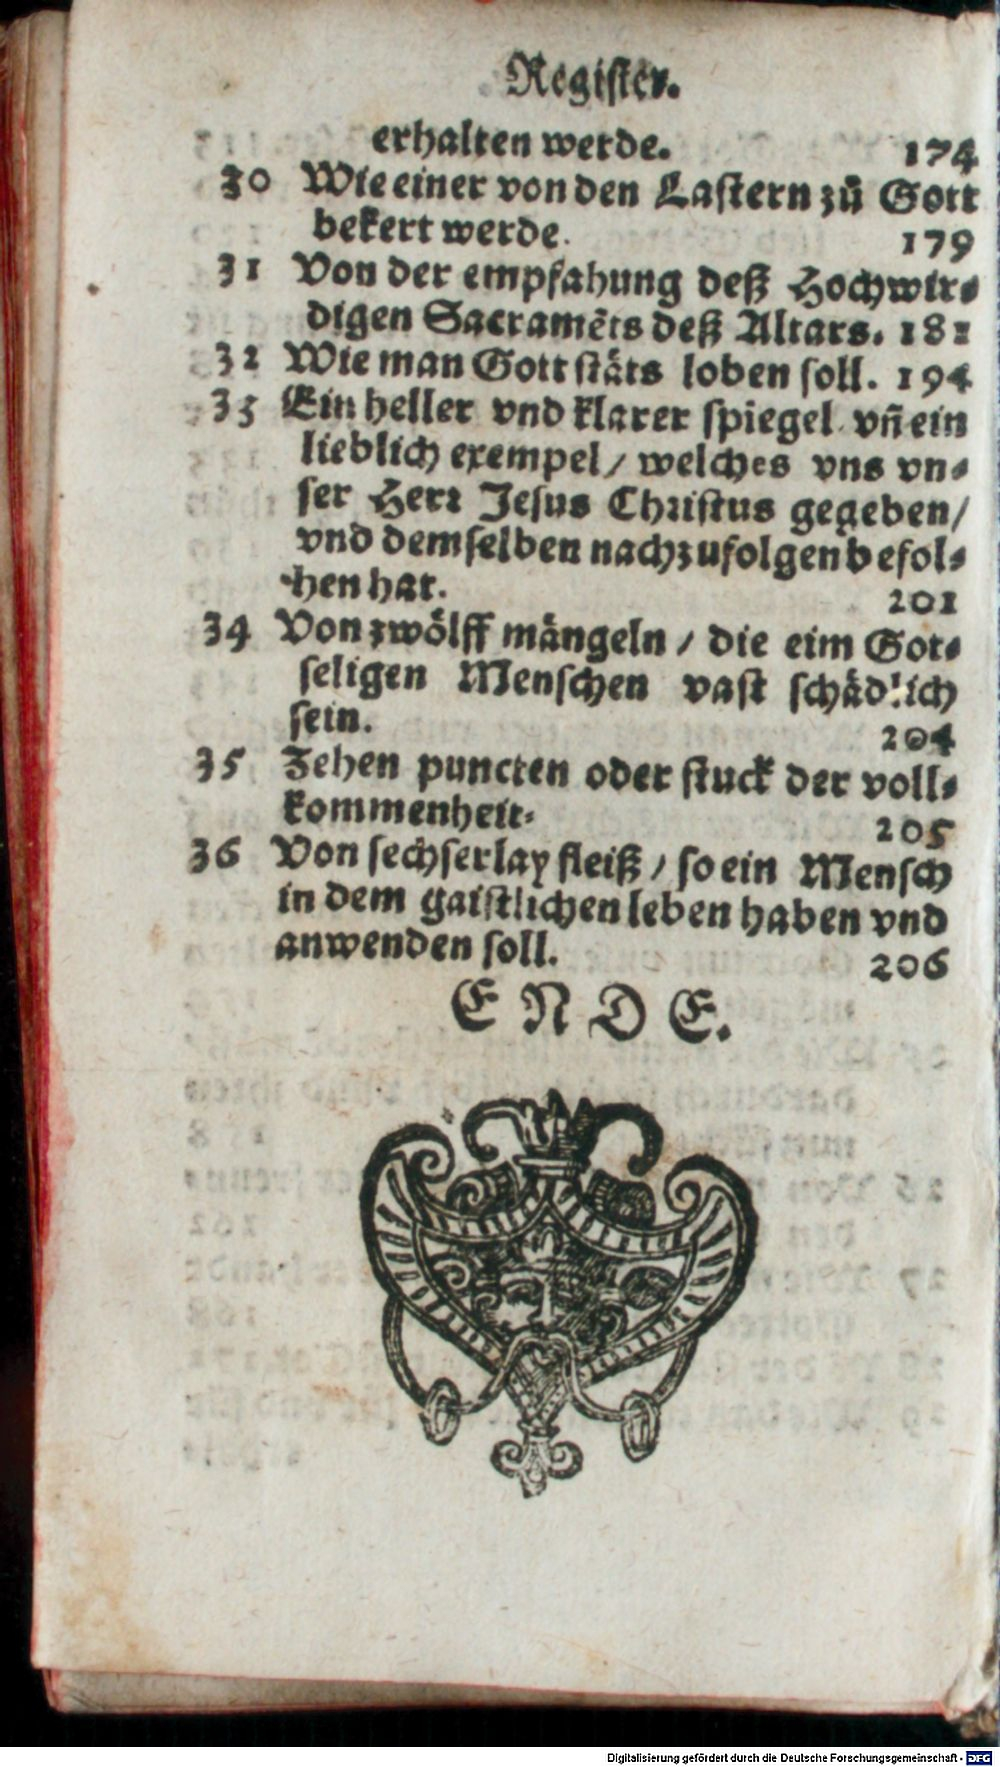 Register.
erhalten werde. 174
30 Wie einer von den Lastern zů Gott
bekert werde. 179
31 Von der empfahung deß Hochwir⸗
digen Sacramẽts deß Altars. 181
32 Wie man Gott stäts loben soll. 194
33 Ein heller vnd klarer spiegel vñ ein
lieblich exempel / welches vns vn⸗
ser Herr Jesus Christus gegeben /
vnd demselben nachzufolgen befol⸗
hen hat. 201
34 Von zwölff mängeln / die eim Got⸗
seligen Menschen vast schädlich
sein. 204
35 Zehen puncten oder stuck der voll⸗
kommenheit. 205
36 Von sechserlay fleiß / so ein Mensch
in dem gaistlichen leben haben vnd
anwenden soll. 206
E N D E.
Digitalisierung gefördert durch die Deutsche Forschungsgemeinschaft - DFG